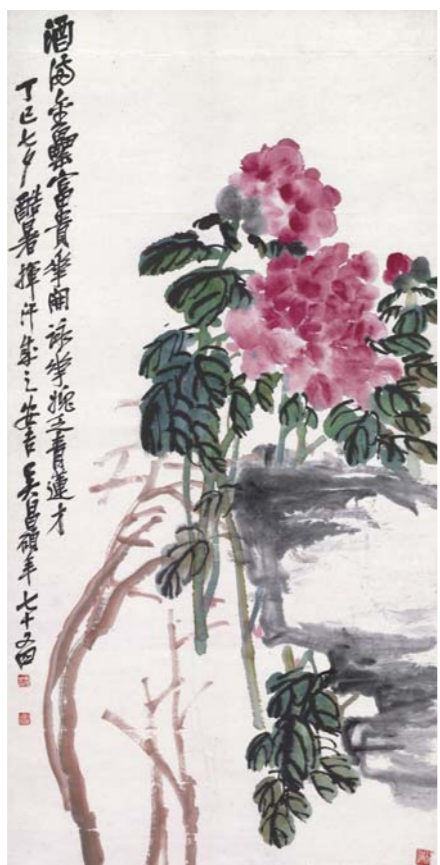 酒滿金罍富貴華開詠華愧乏青蓮才
丁巳七夕酷暑揮汗成之安吉吳昌碩年七十又四